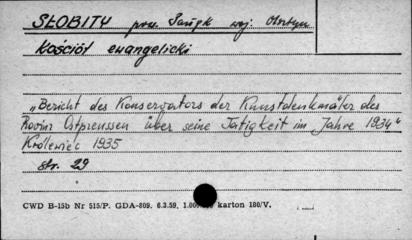 SŁOBITY pow. Pasłęk woj. Olsztyn
Kościół ewangelicki
„Bericht des Konservators der Kunstdenkmäler des
Provinz Ostpreussen über seine Tätigkeit im Jahre 1934"
Królewiec 1935
str. 29
CWD B-15b Nr 515/P. GDA-809. 6.3.59. karton 180/V.